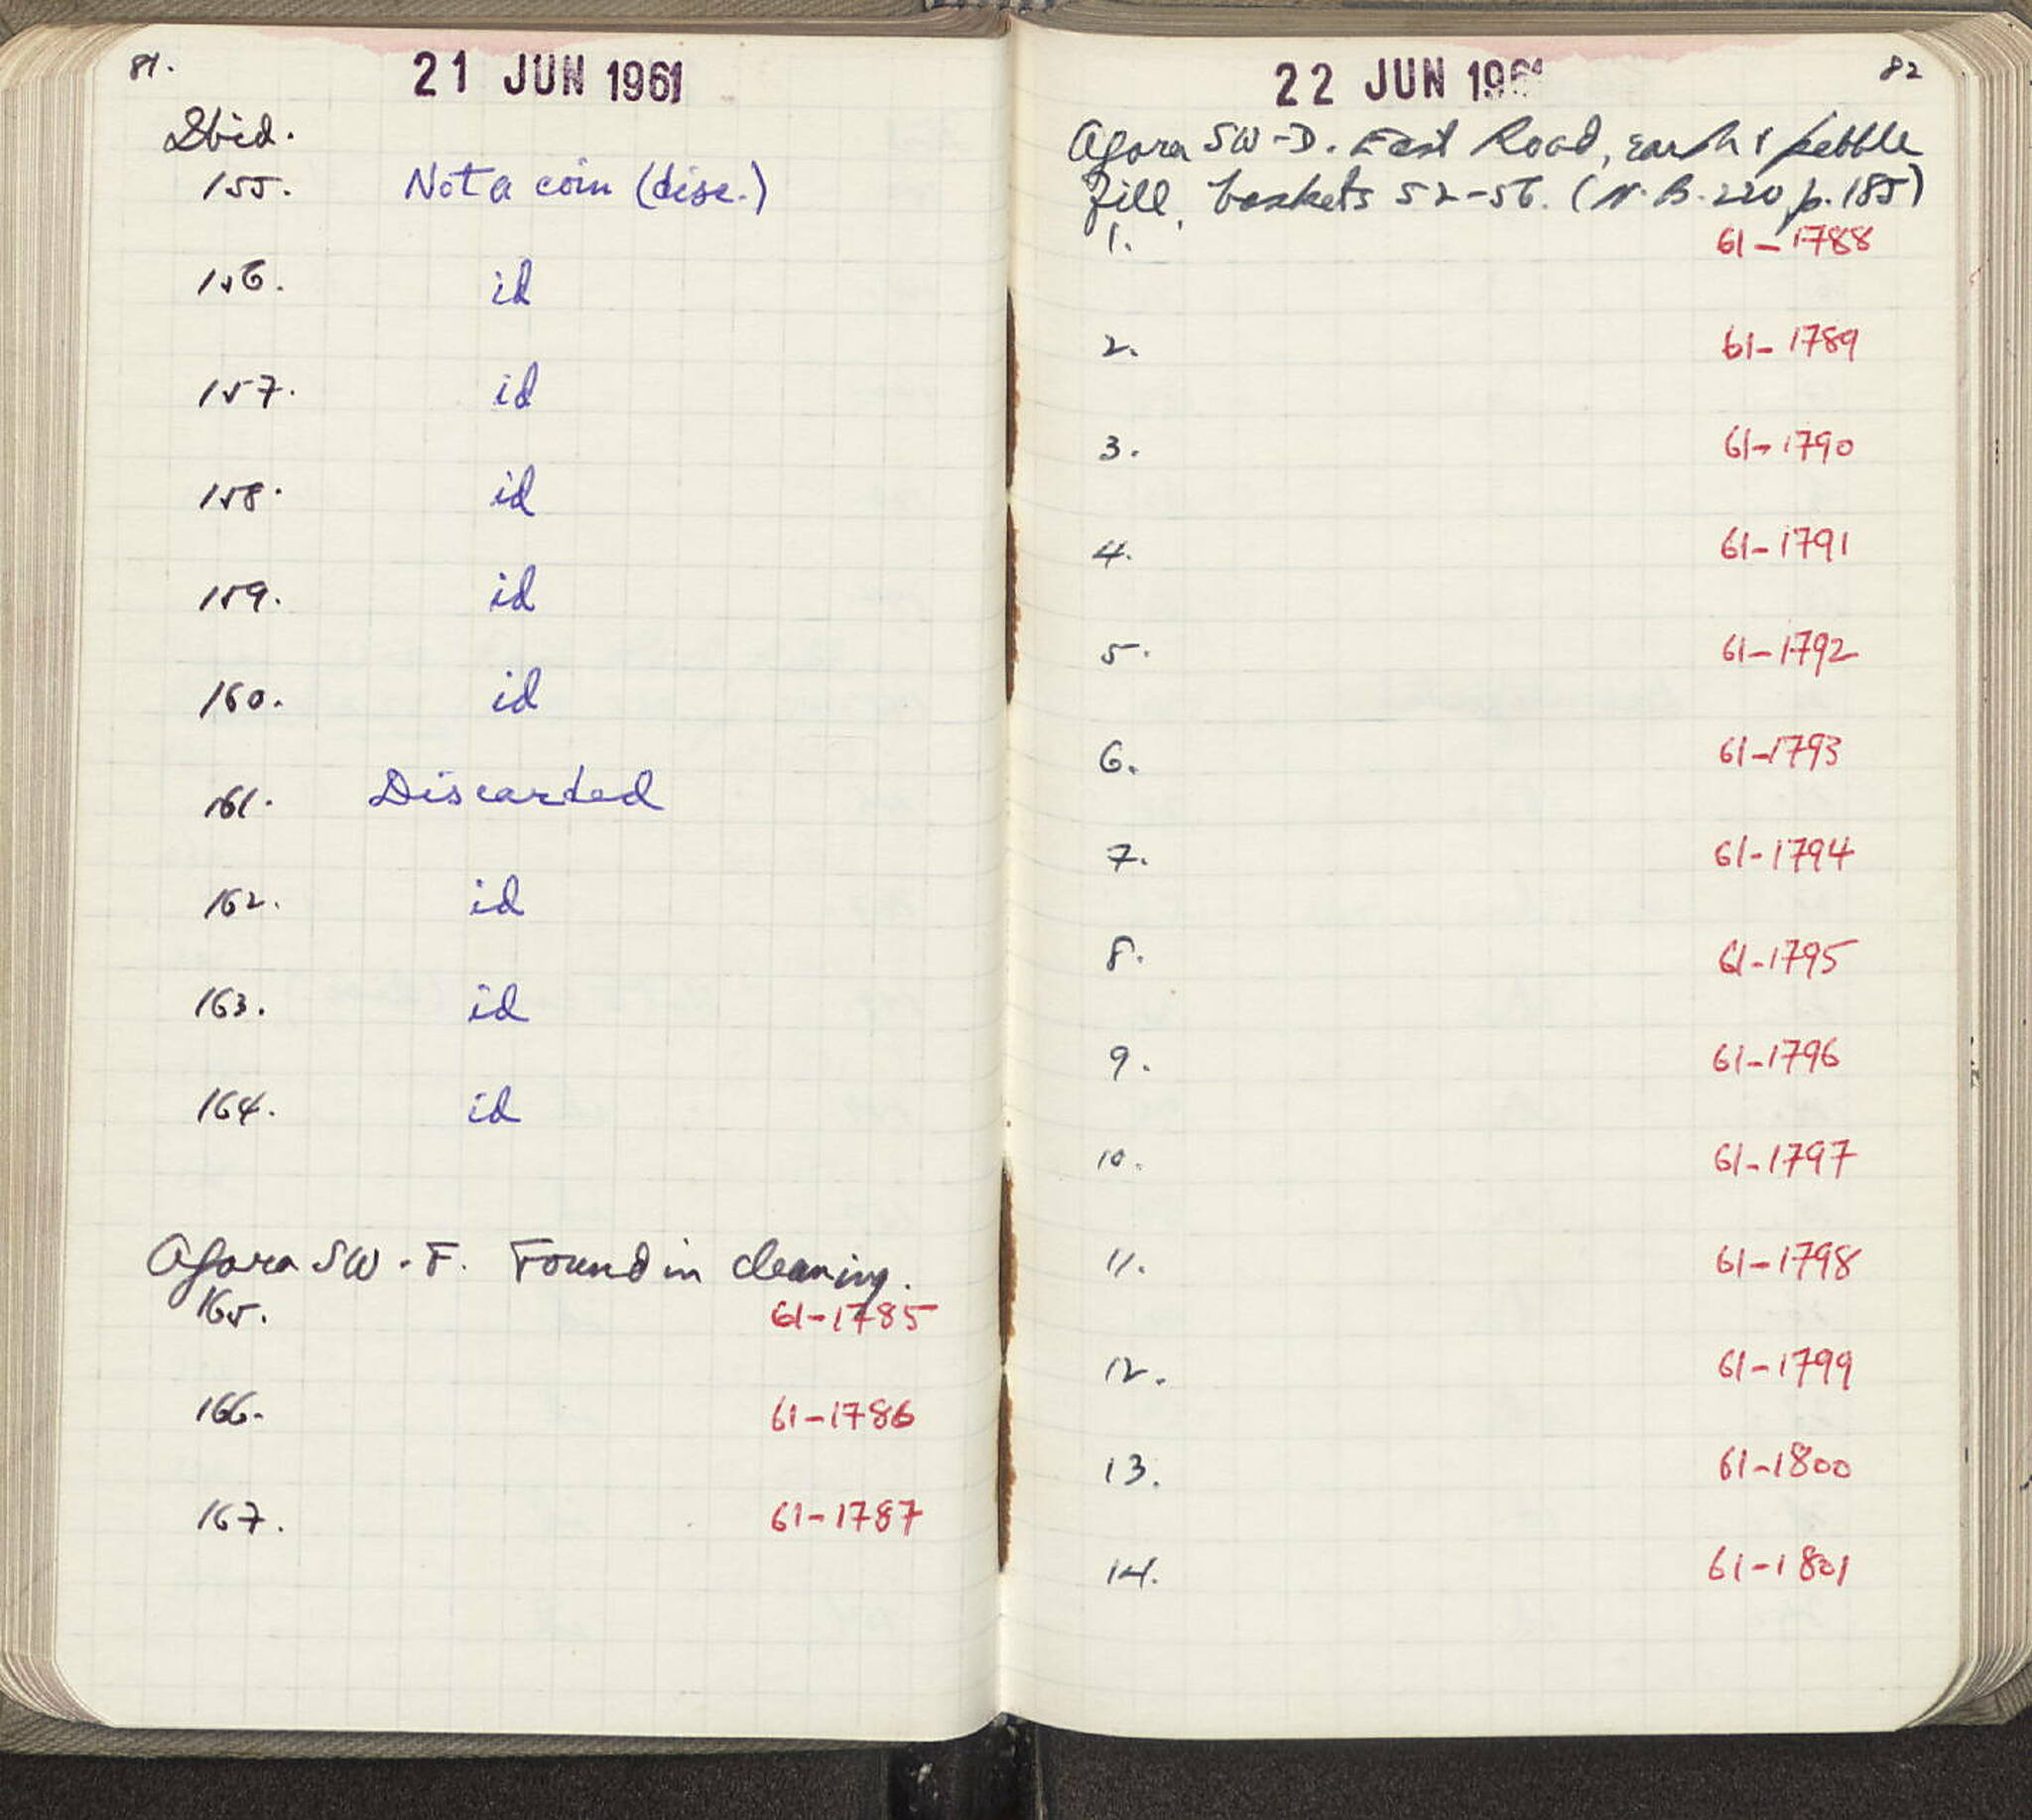 81.
21 JUN 1961
Ibid.
155. Not a coin (disc.)
156. id
157. id
158. id
159. id
160. id
161. Discarded
162. id
163. id
164. id
Agora SW-F. Found in cleaning.
165. 61-1785
166. 61-1786
167. 61-1787
82
22 JUN 1961
Agora SW-D. East Road, earth & pebble
fill, baskets 52-56. (N.B. 220 p. 185)
1. 61-1788
2. 61-1789
3. 61-1790
4. 61-1791
5. 61-1792
6. 61-1793
7. 61-1794
8. 61-1795
9. 61-1796
10. 61-1797
11. 61-1798
12. 61-1799
13. 61-1800
14. 61-1801